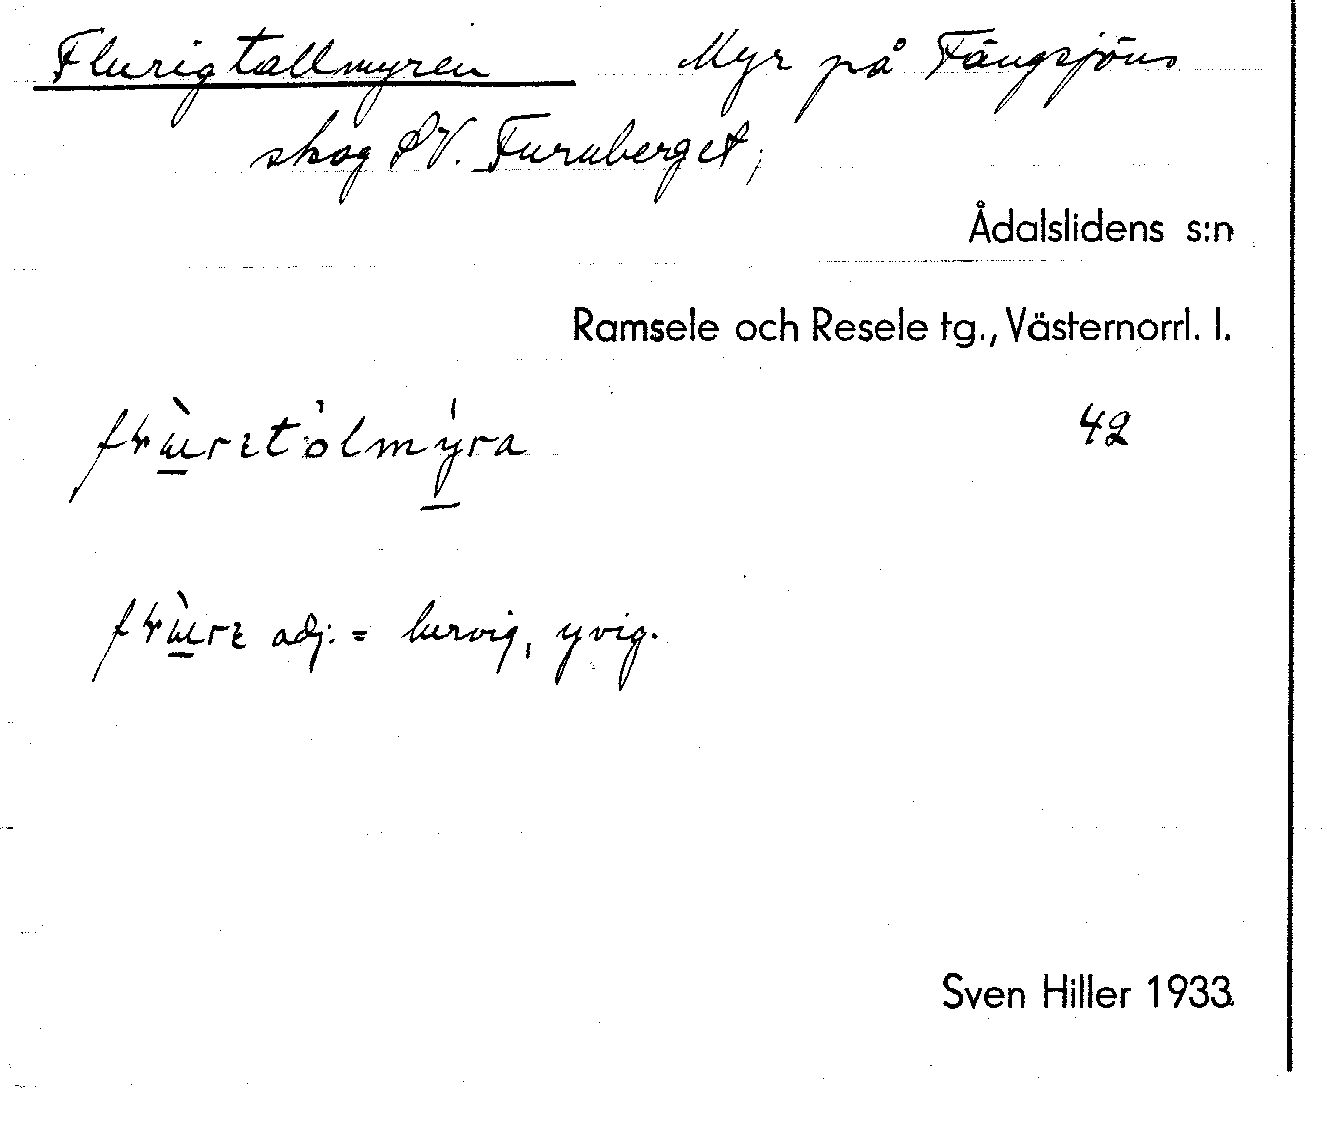 Flurigtallmyren Myr på Fängsjöns
skog SV. Furuberget;
Ådalslidens s:n
Ramsele och Resele tg., Västernorrl. l.
42
adj. = lurvig, yvig.
Sven Hiller 1933